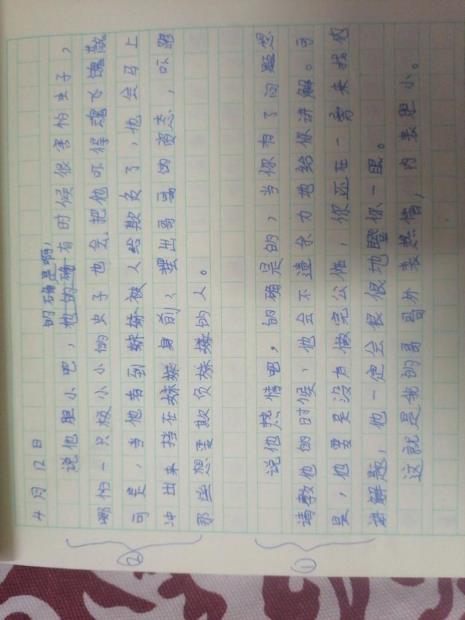 4月12日
的确是啊,
说他胆小吧,他的确有时候很害怕虫子,
哪怕一只极小小的虫子也会把他吓得魂飞魄散
可是,当他看到妹妹被人给欺负了,他会马上
冲出来挡在妹妹身前,摆出哥哥的姿态,吓跑
那些想要欺负妹妹的人。
②
说他热情吧,的确是的,当你有了问题想
请教他的时候,他会不遗余力地给你讲解。可
是,他要是没有做完公作,你还在一旁来找他
讲解题,他一定会狠狠地瞪你一眼。
①
这就是我的哥哥外表热情,内表胆小。